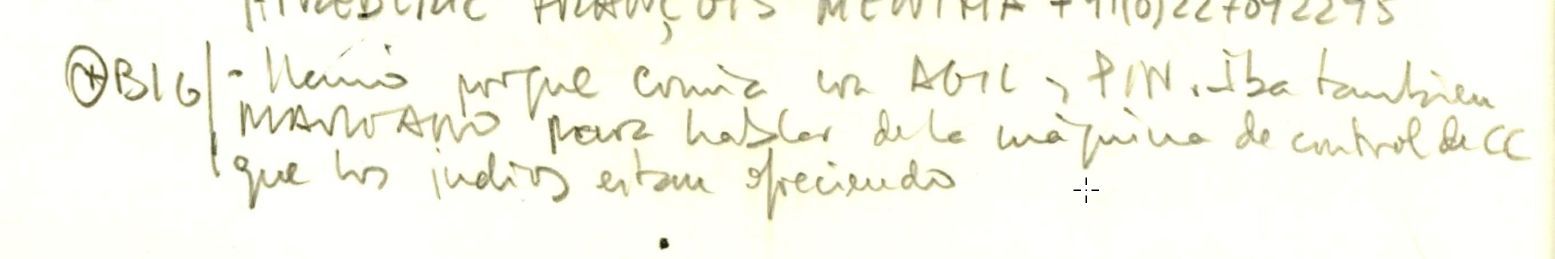 FRANÇOIS MENTHA +41(0)227092295
⊕BIG - Llamó porque comía con AGIL y PIN. Iba tambien
MARIANO para hablar de la máquina de control de CC
que los indios estan ofreciendo